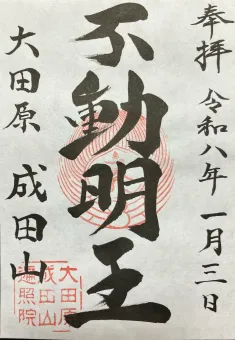 奉拝 令和八年 一月三日
不動明王
大田原 成田山
大田原
成田山
遍照院